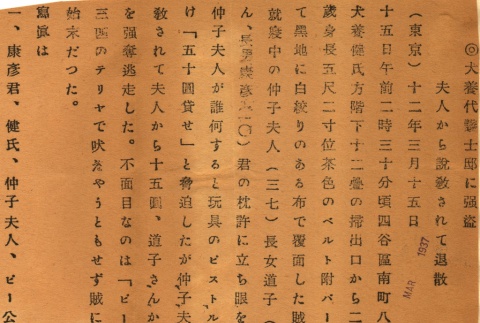 ◎犬養代議士邸に强盗
夫人から説教されて退散
(東京) 十二年三月十五日
十五日午前二時三十分頃四谷區南町八
犬養健氏方階下十二疊の掃出口から二
歲身長五尺二寸位茶色のベルト附バー
て黑地に白絞りのある布で覆面した賊
就寢中の仲子夫人(三七)長女道子(
ん、長男康彦(一〇)君の枕許に立ち眼を
仲子夫人が誰何すると玩具のピストル
け「五十圓貸せ」と脅迫したが仲子夫
教されて夫人から十五圓、道子さんか
を强奪逃走した。不面目なのは「ピー
三匹のテリヤで吠えやうともせず賊に
始末だつた。
寫眞は
一、康彦君、健氏、仲子夫人、ピー公
MAR 1937